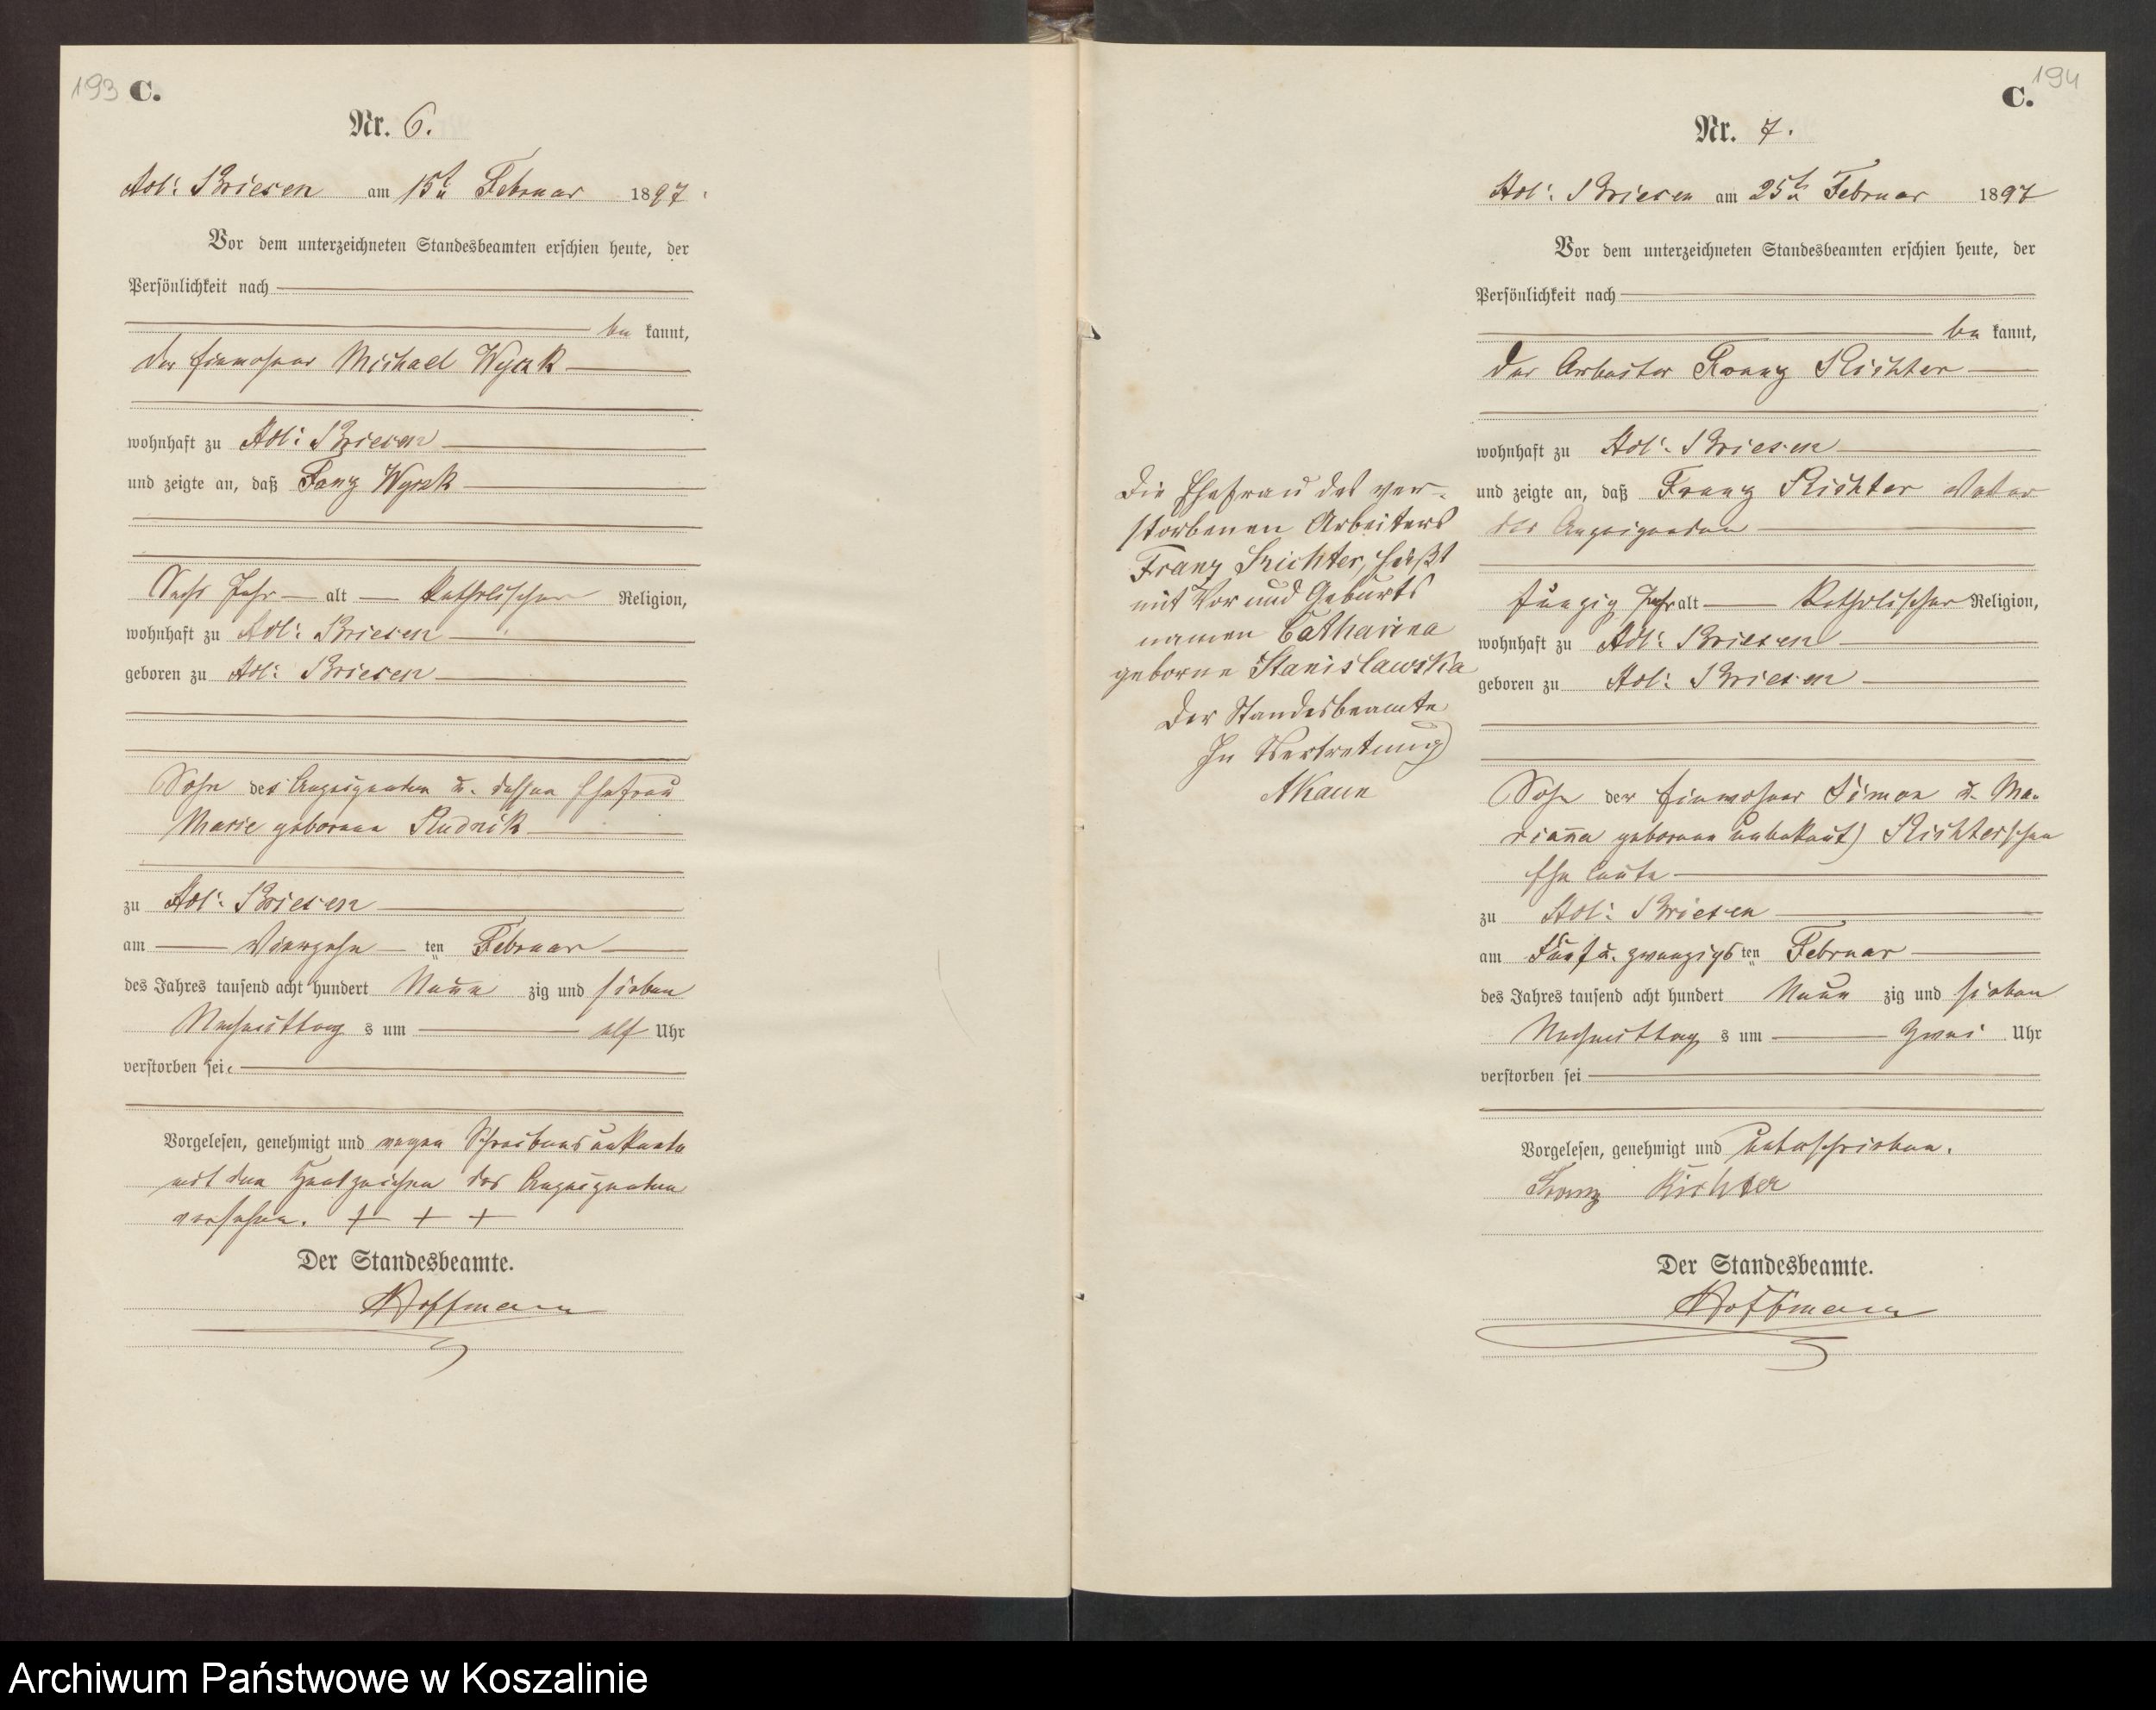 193 C.
Nr. 6.
Adl: Briesen am 15t Februar 1897.
Vor dem unterzeichneten Standesbeamten erschien heute, der
Persönlichkeit nach
be kannt,
der Einwohner Michael Wysk
wohnhaft zu Adl: Briesen
und zeigte an, daß Franz Wysk
Sechs Jahr alt katholischer Religion,
wohnhaft zu Adl: Briesen
geboren zu Adl: Briesen
Sohn des Anzeigenden u. dessen Ehefrau
Marie geborene Rudnik
zu Adl: Briesen
am Vierzehn ten Februar
des Jahres tausend acht hundert Neun zig und sieben
Nachmittag s um elf Uhr
verstorben sei.
Vorgelesen, genehmigt und wegen Schreibensunkunde
mit dem Handzeichen des Anzeigenden
versehen. + + +
Der Standesbeamte.
Hoffmann
194
C.
Nr. 7.
Adl: Briesen am 25t Februar 1897
Vor dem unterzeichneten Standesbeamten erschien heute, der
Persönlichkeit nach
be kannt,
der Arbeiter Franz Richter
wohnhaft zu Adl: Briesen
und zeigte an, daß Franz Richter Vater
des Anzeigenden
fünzig Jahr alt katholischer Religion,
wohnhaft zu Adl: Briesen
geboren zu Adl: Briesen
Sohn der Einwohner Simon u. Ma-
rianna geborene unbekant) Richterschen
Ehe leute
zu Adl: Briesen
am Fünf u. zwanzigs ten Februar
des Jahres tausend acht hundert Neun zig und sieben
Nachmittag s um Zwei Uhr
verstorben sei
Vorgelesen, genehmigt und unterschrieben.
Franz Richter
Der Standesbeamte.
Hoffmann
Die Ehefrau des ver-
storbenen Arbeiters
Franz Richter, heißt
mit Vor und Geburts
namen Catharina
geborne Stanislawska
Der Standesbeamte
In Vertretung
Archiwum Państwowe w Koszalinie